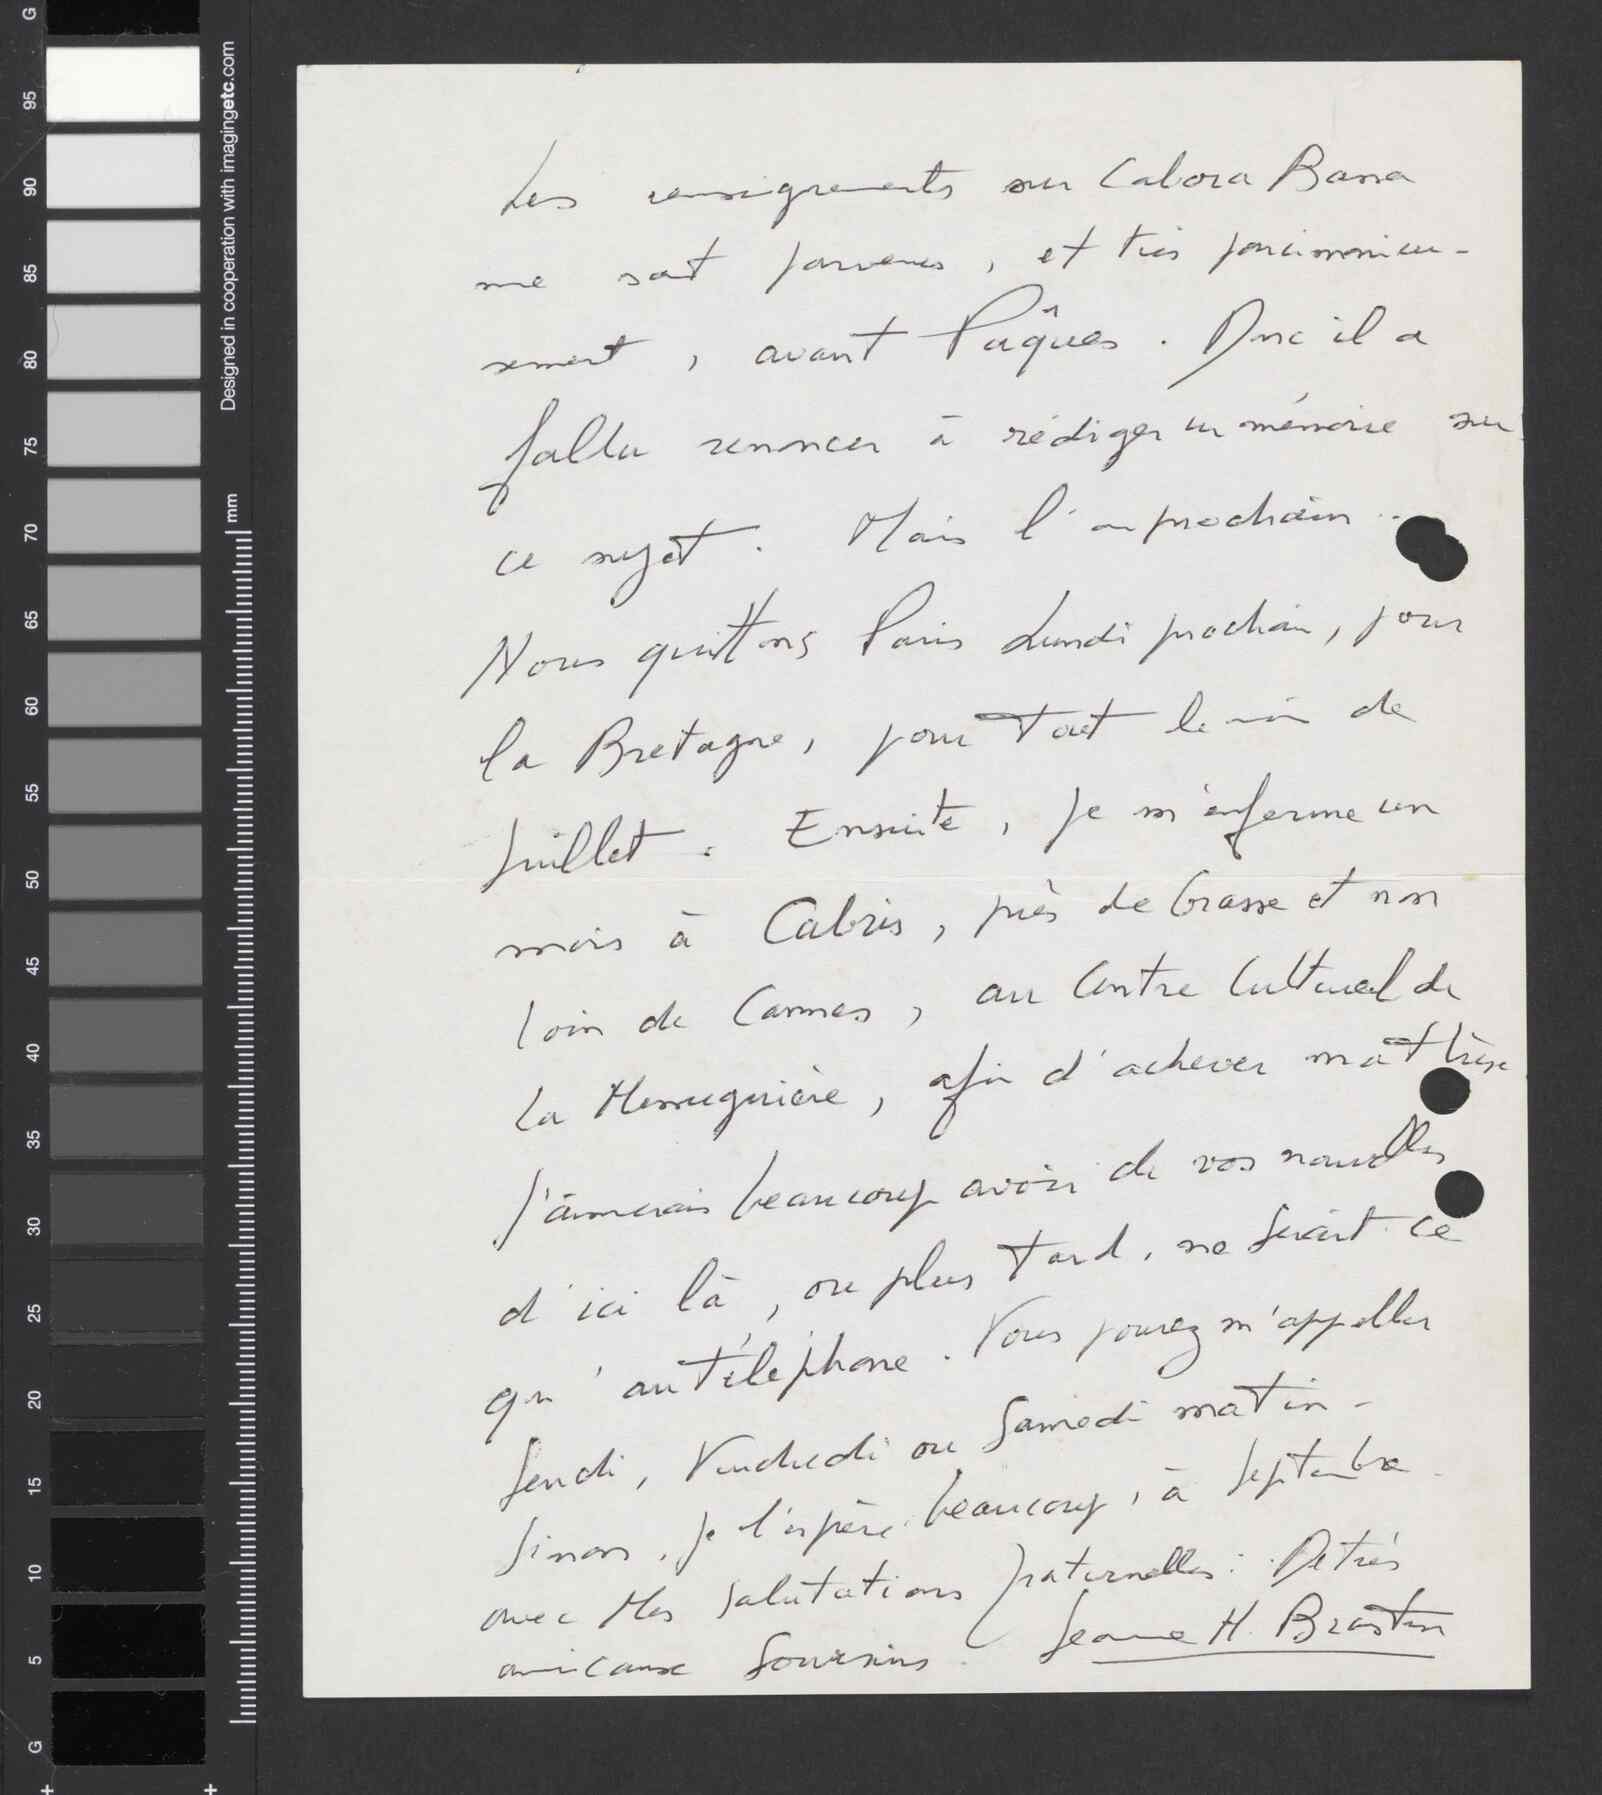 Les renseignements sur Cabora Bassa
me sont parvenus, et très parcimonieu-
sement, avant Pâques. Donc il a
fallu renoncer à rédiger un mémoire sur
ce sujet. Mais l'an prochain..
Nous quittons Paris Lundi prochain, pour
la Bretagne, pour tout le mois de
Juillet. Ensuite, je m'enferme un
mois à Cabris, près de Grasse et non
loin de Cannes, au Centre Culturel de
La Messuguière, afin d'achever ma thèse
J'aimerais beaucoup avoir de vos nouvelles
d'ici là, ou plus tard, ne serait-ce
qu'au téléphone. Vous pouvez m'appeller
Jeudi, Vendredi ou Samedi matin-
Sinon, je l'espère beaucoup, à Septembre
avec Mes Salutations fraternelles. De très
amicaux Souvenirs. Jeanne H.
Designed in cooperation with imagingetc.com
mm
G
95
90
85
80
75
70
65
60
55
50
45
40
35
30
25
20
15
10
5
G